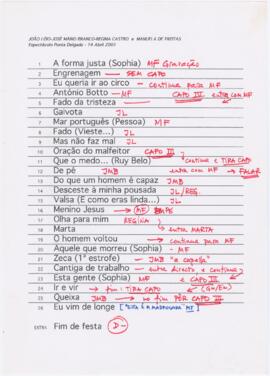 JOÃO LÓIO-JOSÉ MÁRIO BRANCO-REGINA CASTRO e MANUEL A DE FREITAS
Espectáculo Ponta Delgada - 14 Abril 2005
1 A forma justa (Sophia) MF Gravação
2 Engrenagem — SEM CAPO
3 Eu queria ir ao circo — continua para MF
4 António Botto — MF CAPO III entra com MF
5 Fado da tristeza
6 Gaivota JL
7 Mar português (Pessoa) MF
8 Fado (Vieste...) JL
9 Mas não faz mal JL
10 Oração do malfeitor CAPO III
11 Que o medo... (Ruy Belo) Continua e TIRA CAPO
12 De pé JMB entra com MF → FALAR
13 Do que um homem é capaz JMB
14 Desceste à minha pousada JL/REG.
15 Valsa (E como eras linda...) JL
16 Menino Jesus → MF
17 Olha para mim REGINA
18 Marta entra MARTA
19 O homem voltou → continua para MF
20 Aquele que morreu (Sophia) - MF
21 Zeca (1ª estrofe) JMB "a capella"
22 Cantiga de trabalho — entra directo, e continua
23 Esta gente (Sophia) MF e CAPO III
24 Ir e vir fim: TIRA CAPO
25 Queixa JMB → no fim PÔR CAPO III
26 Eu vim de longe
EXTRA Fim de festa D-